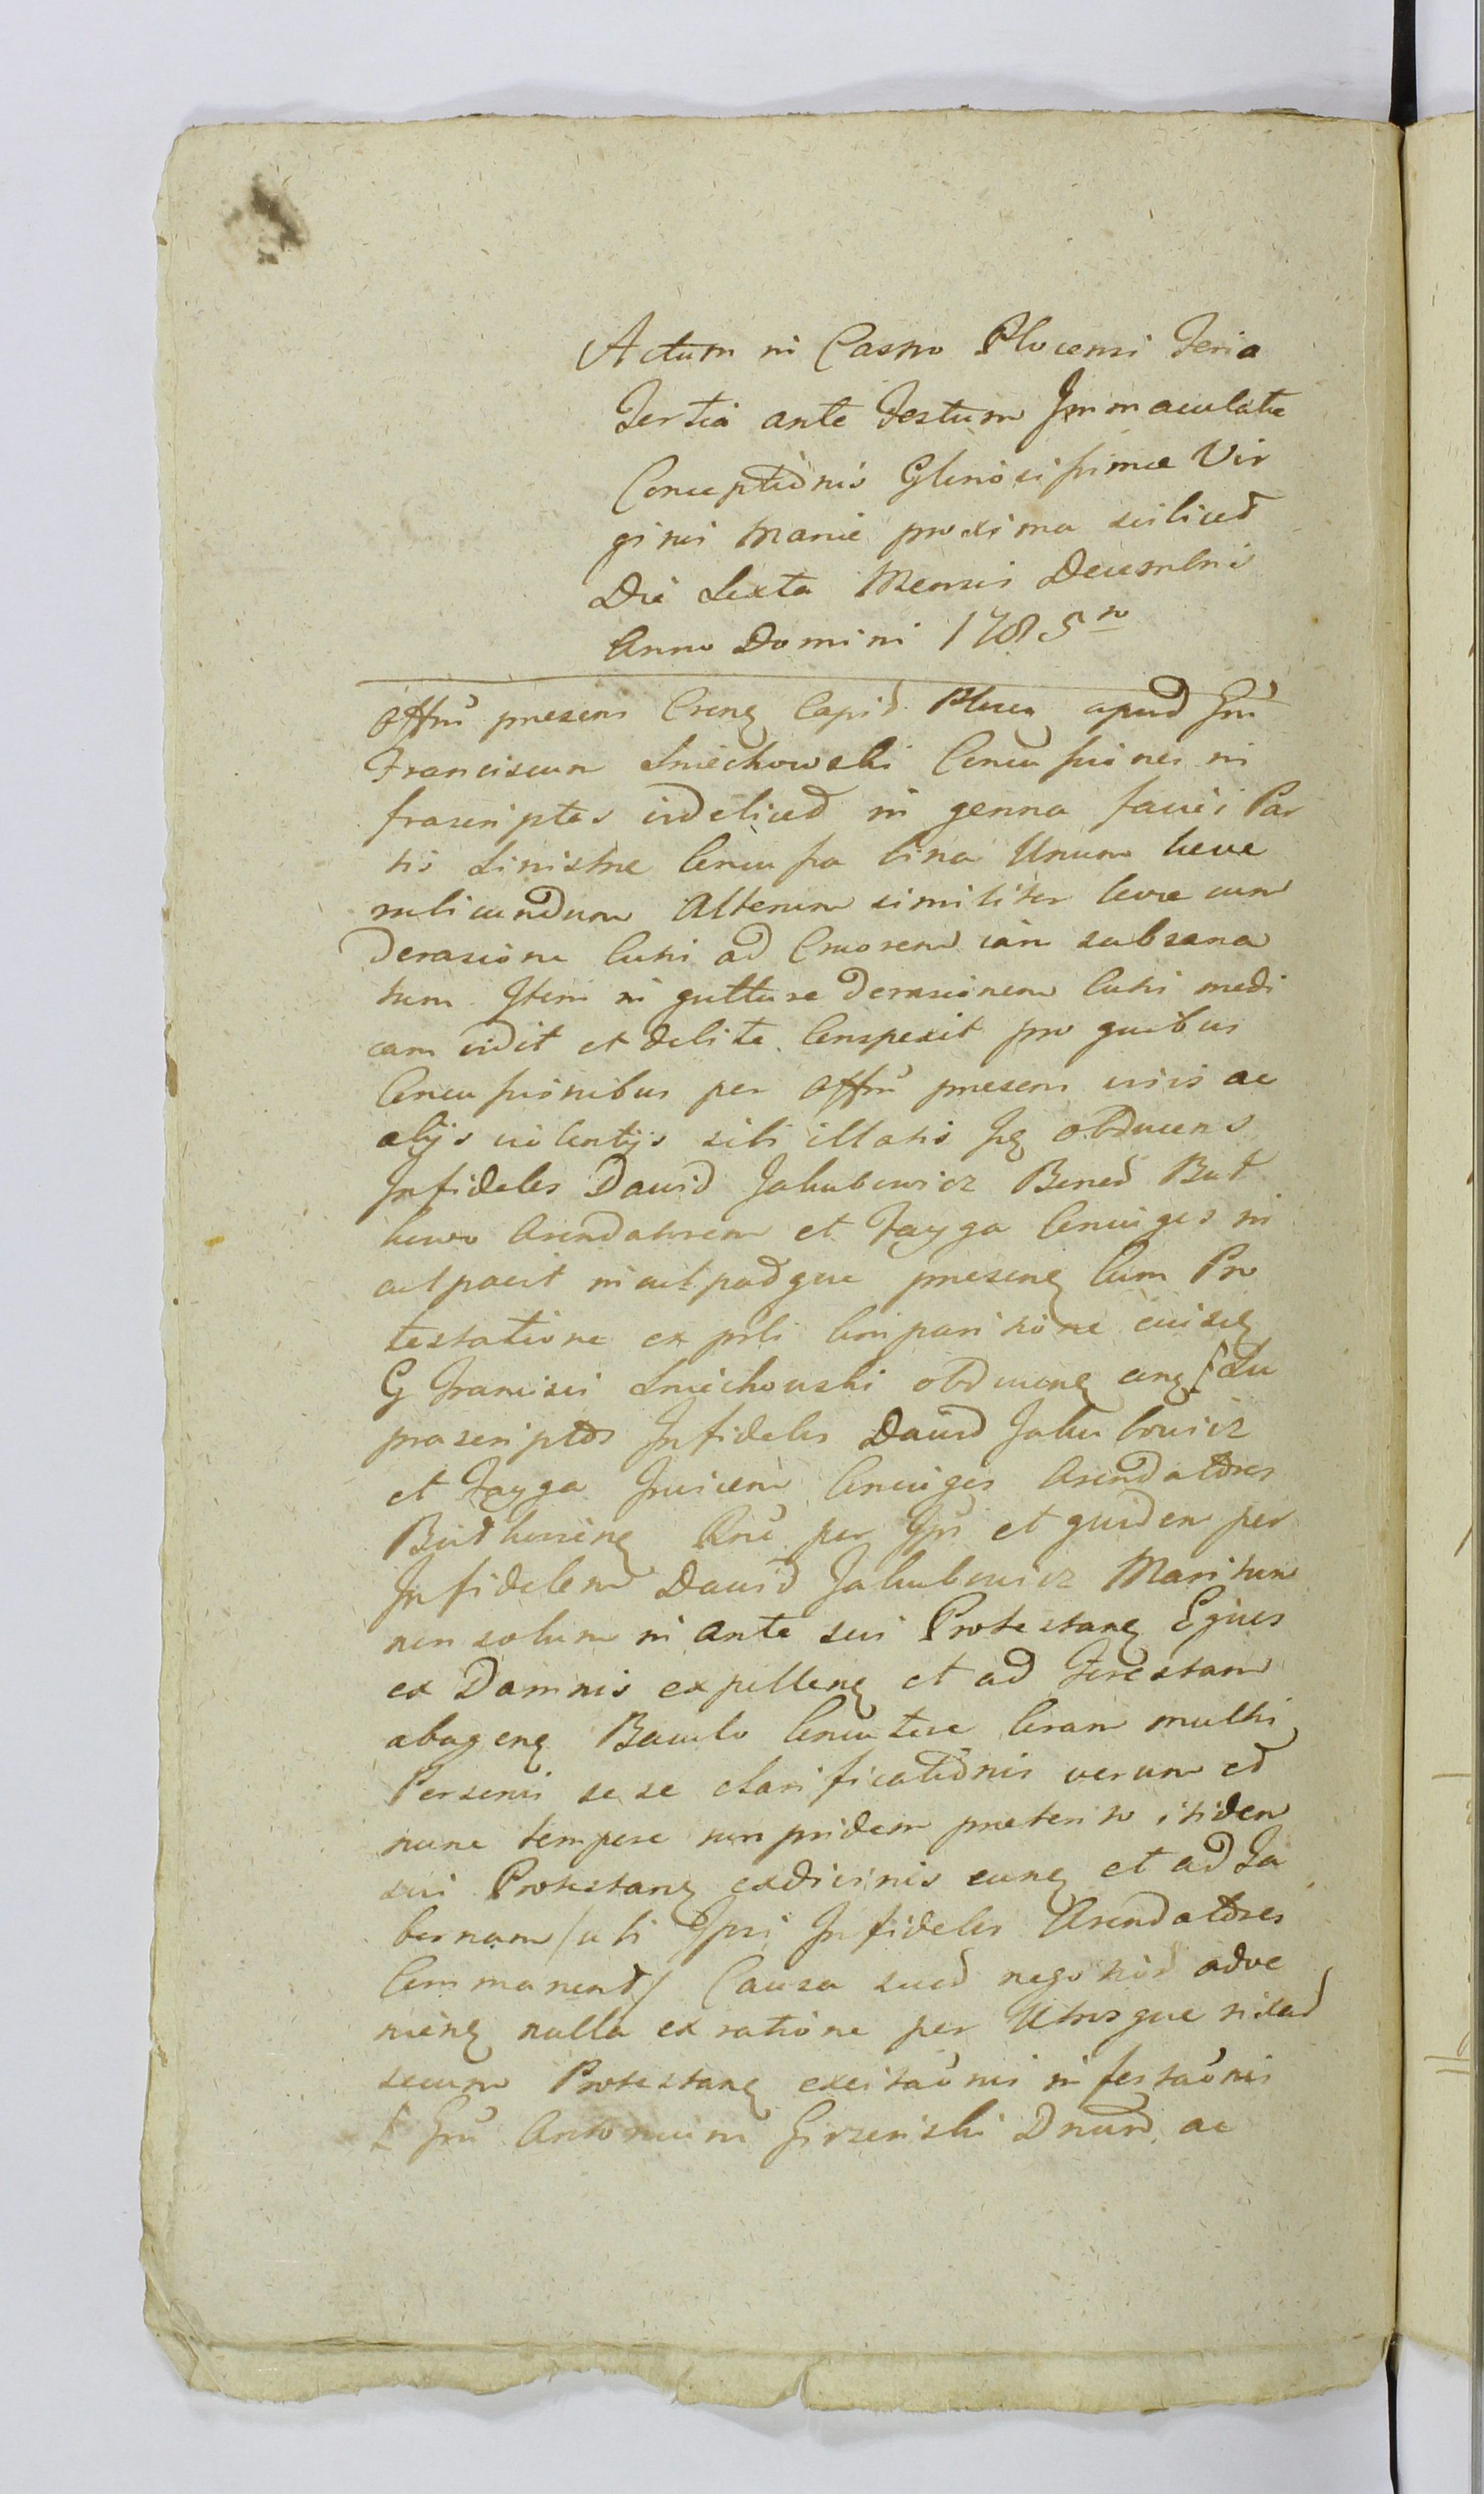 Actum in Castro Plocensi Feria
Tertia ante Festum Immaculatæ
Conceptionis Gloriosissimæ Vir
ginis Mariæ proxima scilicet
Die Sexta Mensis Decembris
Anno Domini 1785to
Offm præsens Crens Capit Plocen apud Gm
Franciscum Smiechowski Concussiones in
frascriptas videlicet in genna faciei Par
tis Sinistræ Concussa bina Unum leve
rubicundum Alterum similiter leve cum
derasione Cutis ad Cruorem iam subsana
tum Item in gutture derasionem Cutis modi
cam vidit et debite Conspexit pro quibus
Concussionibus per Offm præsens visis ac
alijs violentijs sibi illatis obducens
Infideles David Jakubowicz Bonor But
kowo Arendatorem et Fayga Conjuges in
culpavit inculpadque præsens Cum Pro
testatione ex psli Comparitione eiusdem
G Francisci Smiechowski obducens eing Su
prascriptos Infideles David Jakubowicz
et Fayga Invicem Conjuges Arendatores
per Ipsm et quidem per
Infidelem David Jakubowicz Maritum
non solum in ante sui Protestans Equos
ex Damnis expellens et ad Forestam
abagens Baculo Concutere Coram multis
Personis se se clarificationis verum et
nunc tempore non pridem præterito itidem
sui Protestans ex divinis euns et ad Ta
bernam /ubi Ipsi Infideles Arendatores
Commanent/ Causa sued negotiod adve
niens nulla ex ratione per Utrosque rixad
secum Protestans excitaonis infestaonis
Gm Antonium Dnum ac